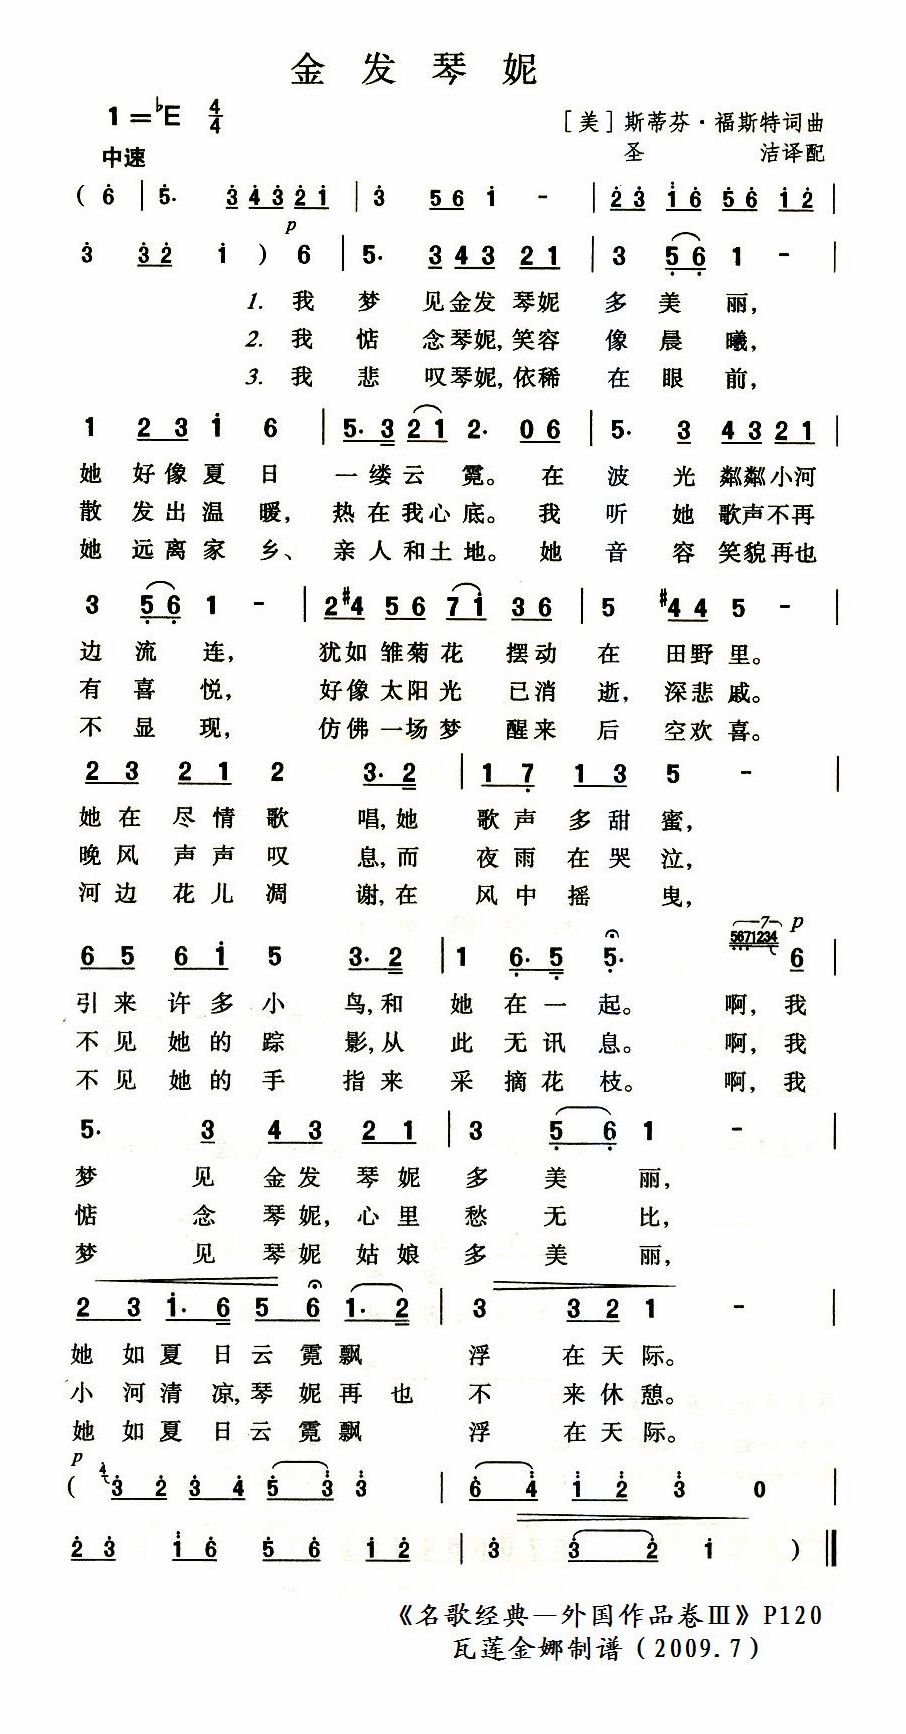 金发琴妮
1=♭E 4/4
[美]斯蒂芬·福斯特词曲
中速
圣 洁译配
( 6 | 5. 3 4 3 2 1 | 3 5 6 1 - | 2 3 1 6 5 6 1 2 |
p
3 3 2 1 ) 6 | 5. 3 4 3 2 1 | 3 5 6 1 - |
1. 我 梦 见金发 琴妮 多 美 丽,
2. 我 惦 念琴妮,笑容 像 晨 曦,
3. 我 悲 叹琴妮,依稀 在 眼 前,
1 2 3 1 6 | 5. 3 2 1 2. 0 6 | 5. 3 4 3 2 1 |
她 好像夏 日 一缕云 霓。 在 波 光 粼粼小河
散 发出温 暖, 热在我心 底。 我 听 她 歌声不再
她 远离家 乡、 亲人和土 地。 她 音 容 笑貌再也
3 5 6 1 - | 2 #4 5 6 7 1 3 6 | 5 #4 4 5 - |
边 流 连, 犹如 雏菊 花 摆动 在 田野 里。
有 喜 悦, 好像 太阳 光 已消 逝, 深悲 戚。
不 显 现, 仿佛 一场 梦 醒来 后 空欢 喜。
2 3 2 1 2 3. 2 | 1 7 1 3 5 -
她在 尽情 歌 唱,她 歌声 多甜 蜜,
晚风 声声 叹 息,而 夜雨 在哭 泣,
河边 花儿 凋 谢,在 风中 摇 曳,
7 p
6 5 6 1 5 3. 2 | 1 6. 5 5. 5671234 6 |
引来 许多 小 鸟,和 她 在一 起。 啊, 我
不见 她的 踪 影,从 此 无讯 息。 啊, 我
不见 她的 手 指来 采 摘花 枝。 啊, 我
5. 3 4 3 2 1 | 3 5 6 1 - |
梦 见 金发 琴妮 多 美 丽,
惦 念 琴妮, 心里 愁 无 比,
梦 见 琴妮 姑娘 多 美 丽,
2 3 1. 6 5 6 1. 2 | 3 3 2 1 - |
她 如夏 日云 霓飘 浮 在天 际。
小 河清 凉,琴 妮再 也 不 来休 憩。
她 如夏 日云 霓飘 浮 在天 际。
p
( 4 3 2 3 4 5 3 3 | 6 4 1 2 3 0 |
2 3 1 6 5 6 1 2 | 3 3 2 1 ) ‖
《名歌经典—外国作品卷Ⅲ》P120
瓦莲金娜制谱(2009.7)